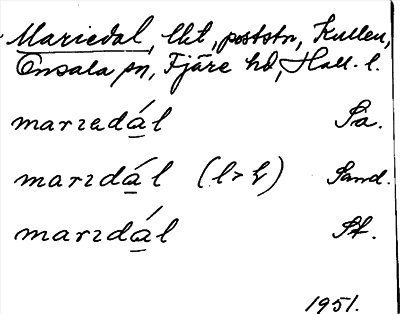 Mariedal, lht, poststn, Kullen,
Onsala sn, Fjäre hd, Hall. l.
marɪedál Så.
marɪdál (l > ɫ) Sand.
marɪdál Sf.
1951.